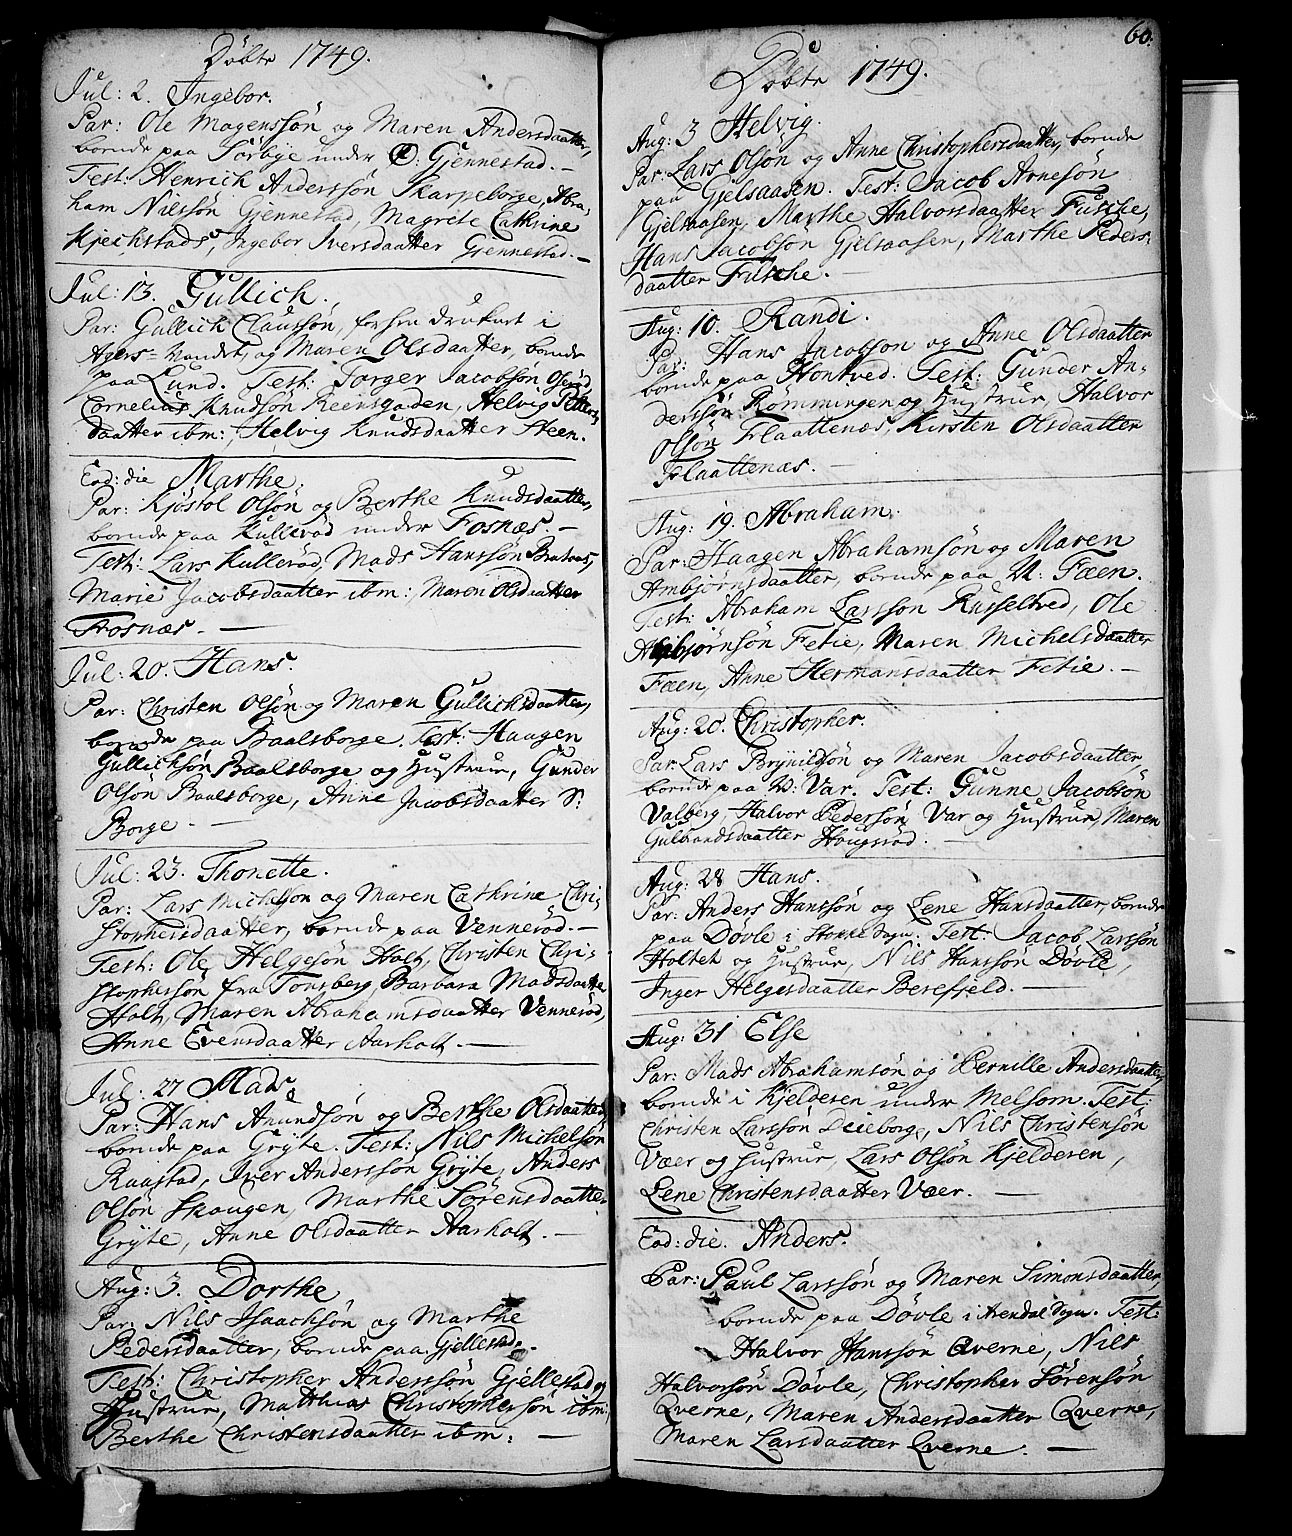 Döbte 1749.
Jul: 2. Ingebor.
Par: Ole Mogenssön og Maren Andersdaatter,
boende paa Sörbye under Gjennestad. –
Test: Henrich Anderssön Skarpeborge, Abra,
ham Nilssön Gjennestad, Magrete Cathrine
Kjechstads, Ingebor Iversdaatter Gjennestad. –
Jul: 13. Gullich.
Par: Gullich Claussön, forhen druknet i
Agers= Vandet, og Maren Olsdaatter, boende
paa Lund. Test: Torger Jacobsön Oseröd,
Cornelius Knudsön Reensgaden, Helvig Petters,
daatter ibm:, Helvig Knudsdaatter Steen.
Eod: die Marthe.
Par: Kjöstol Olsön og Berthe Knudsdaatter,
boende paa Kulleröd under Fosnæs. –
Test: Lars Kulleröd, Mads Hanssön
Marie Jacobsdaatter ibm:, Maren Olsdaatter
Fosnæs. –
Jul: 20. Hans.
Par: Christen Olsön og Maren Gullichsdaatter,
boende paa Baalsborge. Test: Haagen
Gullichsön Baalsborge og Hustrue, Gunder
Olsön Baalsborge, Anne Jacobsdaatter S:
Borge. –
Jul: 23. Thonette.
Par: Lars Michelsön og Maren Cathrine Chri,
stophersdaatter, boende paa Venneröd. –
Test: Ole Helgesön Holt, Christen Chri,
stophersön fra Tönsberg, Barbara Madsdaatter
Holt, Maren Abrahamsdaatter Venneröd,
Anne Evensdaatter Aarholt. –
Jul: 27 Mads
Par: Hans Anundsön og Berthe Olsdaatter
boende paa Gryte. Test: Nils Michelsön
Raastad, Iver Anderssön Gryte, Anders
Olsön Skougen, Marthe Sörensdaatter
Gryte, Anne Olsdaatter Aarholt. –
Aug: 3. Dorthe
Par: Nils Isaachsön og Marthe
Pedersdaatter, boende paa Gjellestad. –
Test: Christopher Anderssön Gjellestad og
Hustrue, Matthias Christophersön ibm:
Berthe Christensdaatter ibm: –
60.
Döbte 1749.
Aug: 3 Helvig.
Par: Lars Olsön og Anne Christophersdaatter, boende
paa Gjelsaasen. Test: Jacob Arnesön
Gjelsaasen, Marthe Halvorsdaatter Fusche,
Hans Jacobsön Gjelsaasen, Marthe Peders,
daatter Fusche. –
Aug: 10. Randi.
Par: Hans Jacobsön og Anne Olsdaatter
boende paa Hontved. Test: Gunder An,
derssön Römmingen og Hustrue, Halvor
Olsön Flaattenæs, Kirsten Olsdaatter
Flaattenæs. –
Aug: 19. Abraham.
Par: Haagen Abrahamsön og Maren
Ambjörnsdaatter, boende paa N: Fæen.
Test: Abraham Larssön Russeltved, Ole
Fetie, Maren Michelsdaatter
Fæen, Anne Hermansdaatter Fetie. –
Aug: 20. Christopher.
Par: Lars Brynildsön og Maren Jacobsdaatter,
boende paa N: Var. Test: Gunne Jacobsön
Valberg, Halvor Pedersön Var og Hustrue, Maren
Gulbrandsdaatter Hougsröd. –
Aug: 28 Hans.
Par: Anders Hanssön og Lene Hansdaatter, boende
paa Dövle i Stokke Sogn. Test: Jacob Larssön
Holtet og Hustrue, Nils Hanssön Dövle,
Inger Helgesdaatter Berefjeld. –
Aug: 31 Else
Par: Mads Abrahamsön og Pernille Andersdaatter,
boende i Kjelderen under Melsom. Test:
Christen Larssön, Nils Christensön
Væer og Hustrue, Lars Olsön Kjelderen,
Lene Christensdaatter Væer. –
Eod: die. Anders.
Par: Paul Larssön og Maren Simonsdaatter,
boende paa Dövle i Arendal Sogn. Test:
Halvor Hanssön Qverne, Nils
Halvorsön Dövle, Christopher Sörensön
Qverne, Maren Andersdaatter Qverne,
Maren Larsdaatter Qverne. –